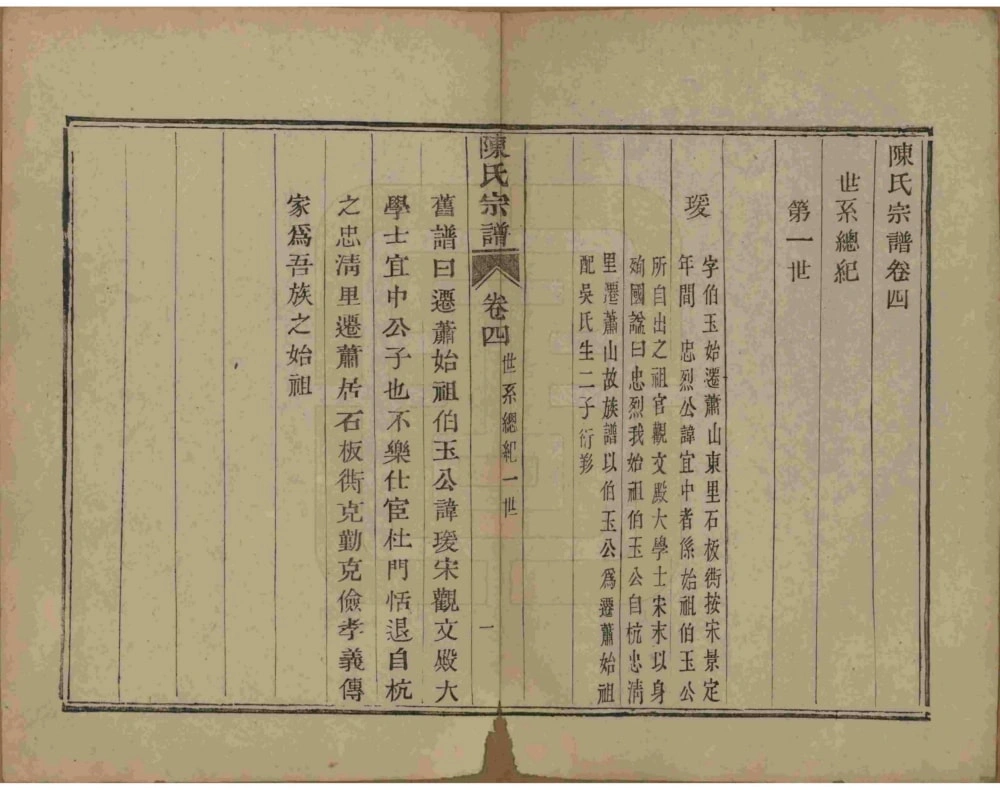 陳氏宗譜卷四
世系總紀
第一世
瑷
字伯玉始遷蕭山東里石板衖按宋景定
年間　忠烈公諱宜中者係始祖伯玉公
所自出之祖官觀文殿大學士宋末以身
殉國諡曰忠烈我始祖伯玉公自杭忠清
里遷蕭山故族譜以伯玉公爲遷蕭始祖
配吳氏生二子衍㣋
陳氏宗譜　卷四　世系總紀一世　一
舊譜曰遷蕭始祖伯玉公諱瑷宋觀文殿大
學士宜中公子也不樂仕宦杜門恬退自杭
之忠清里遷蕭居石板衖克勤克儉孝義傳
家爲吾族之始祖